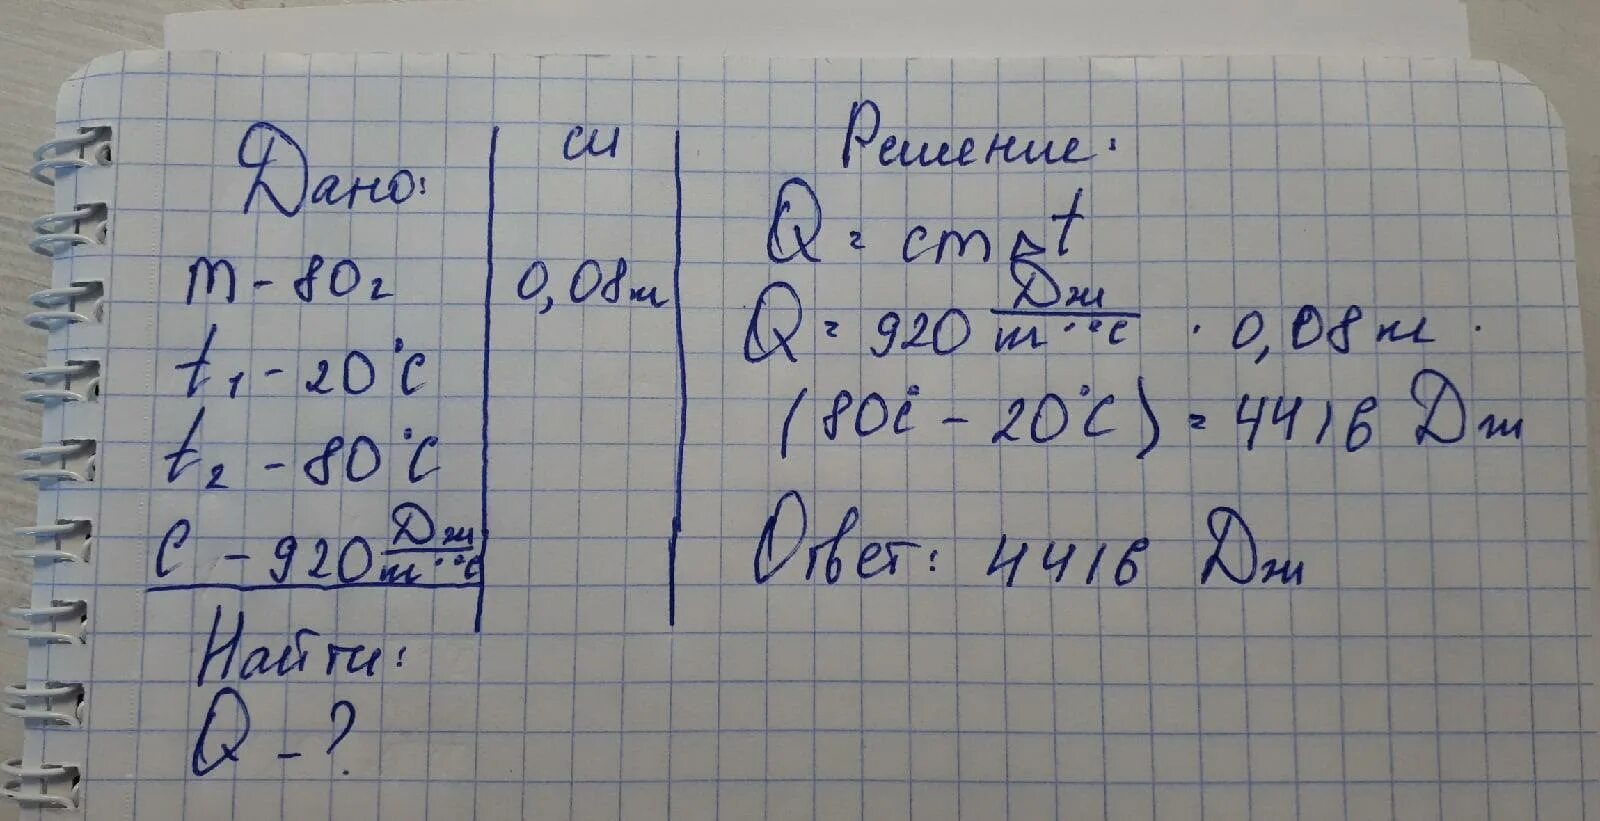 Дано:
m - 80г
t₁ - 20°C
t₂ - 80°C
C - 920 Дж/m·°C
Найти:
Q - ?
си
0,08m
Решение:
Q = cm △t
Q = 920 Дж/m·°C · 0,08m ·
(80°C - 20°C) = 4416 Дж
Ответ: 4416 Дж